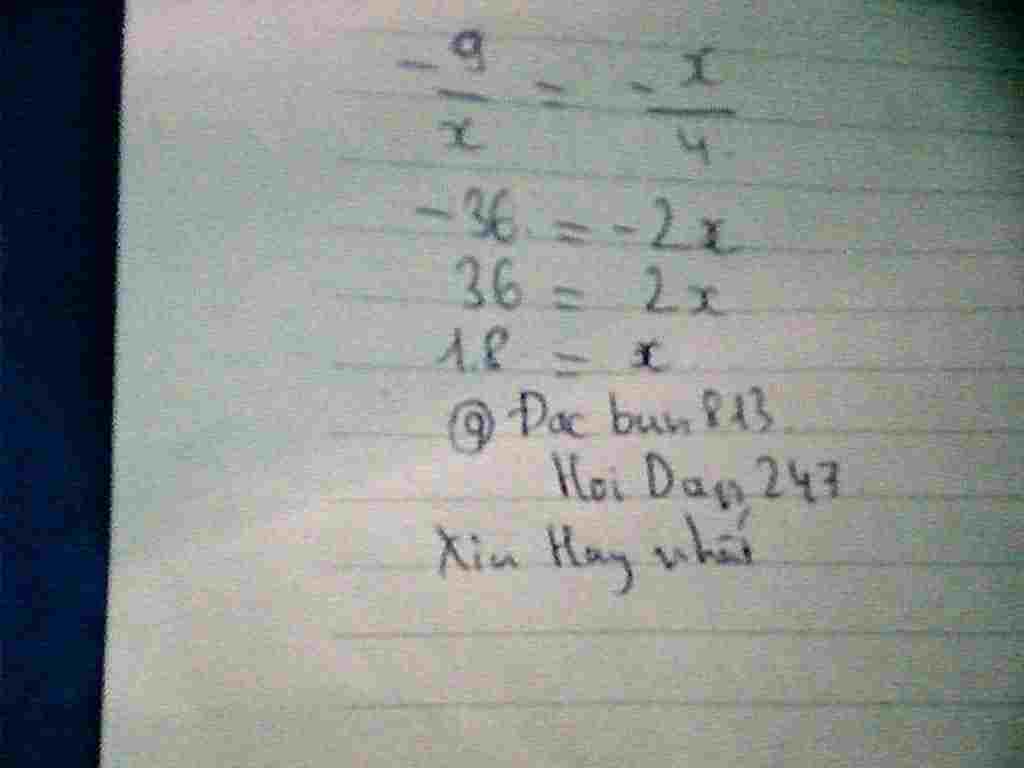 -9/x = -x/4
-36 = -2x
36 = 2x
18 = x
@ Đoc bun 813
Hoi Dap 247
Xin Hay nhất